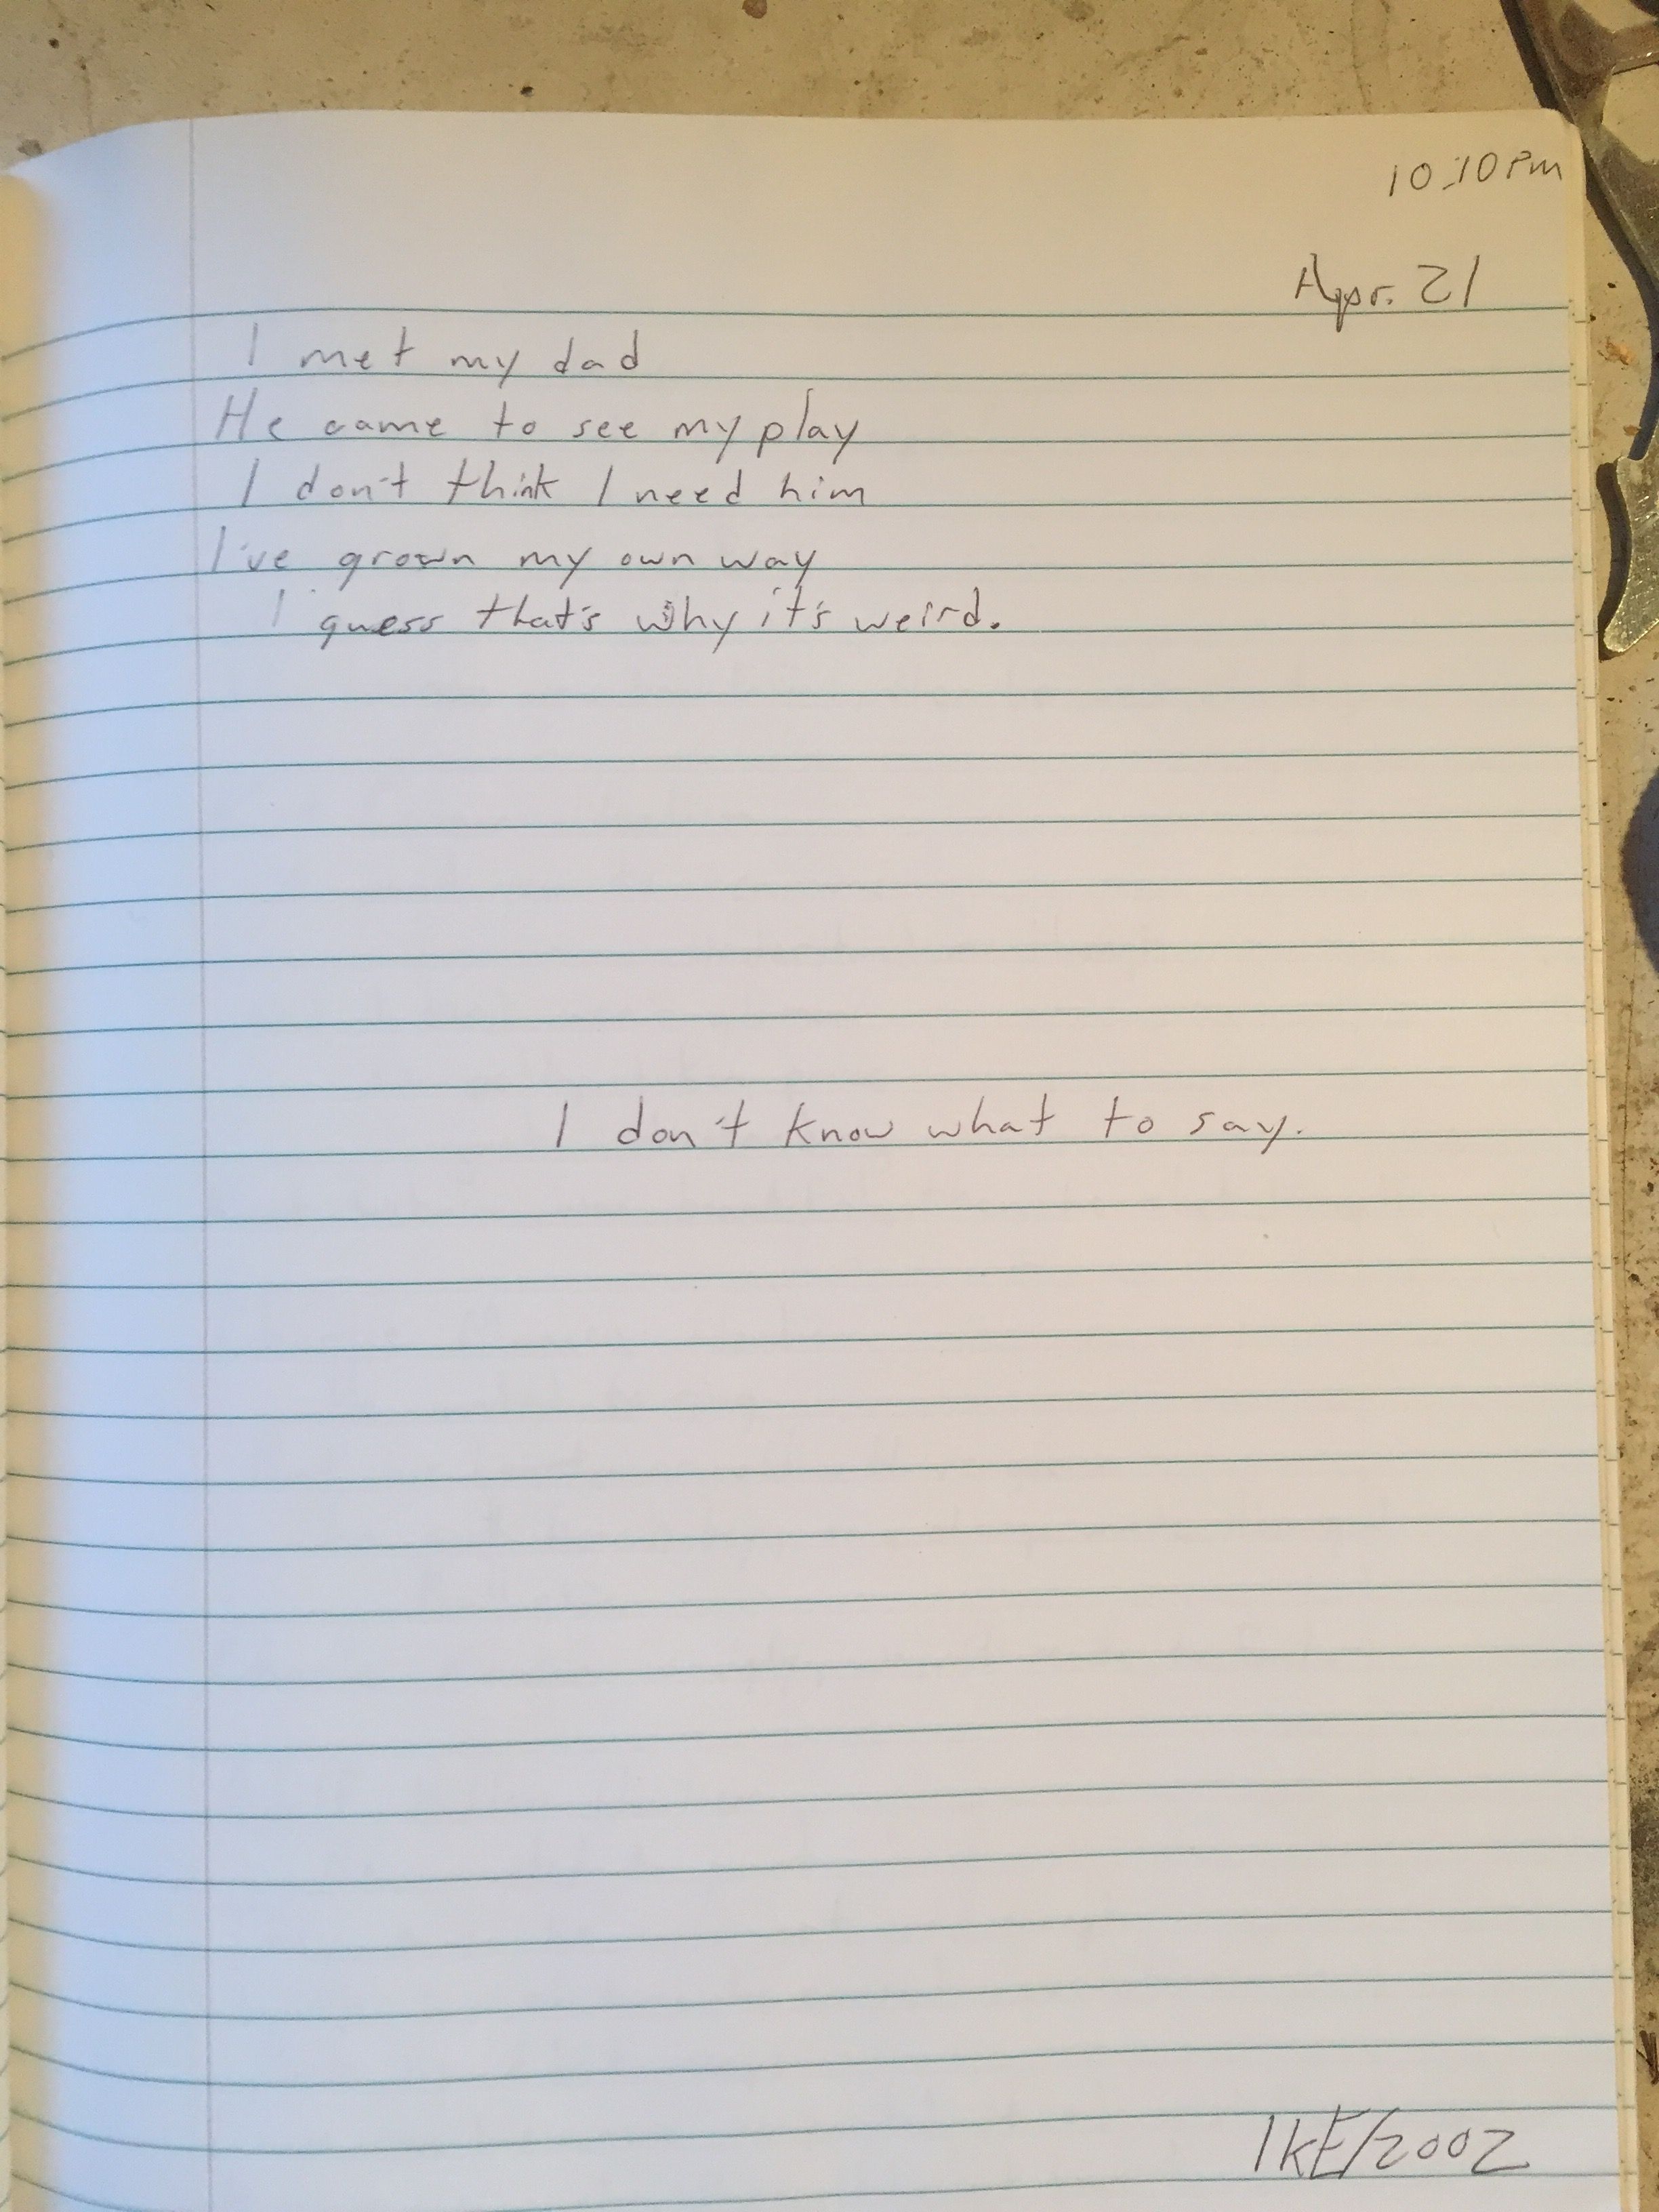 10:10 Pm
Apr. 21
I met my dad
He came to see my play
I don't think I need him
I've grown my own way
I guess that's why it's weird.
I don't know what to say.
IKE/2002